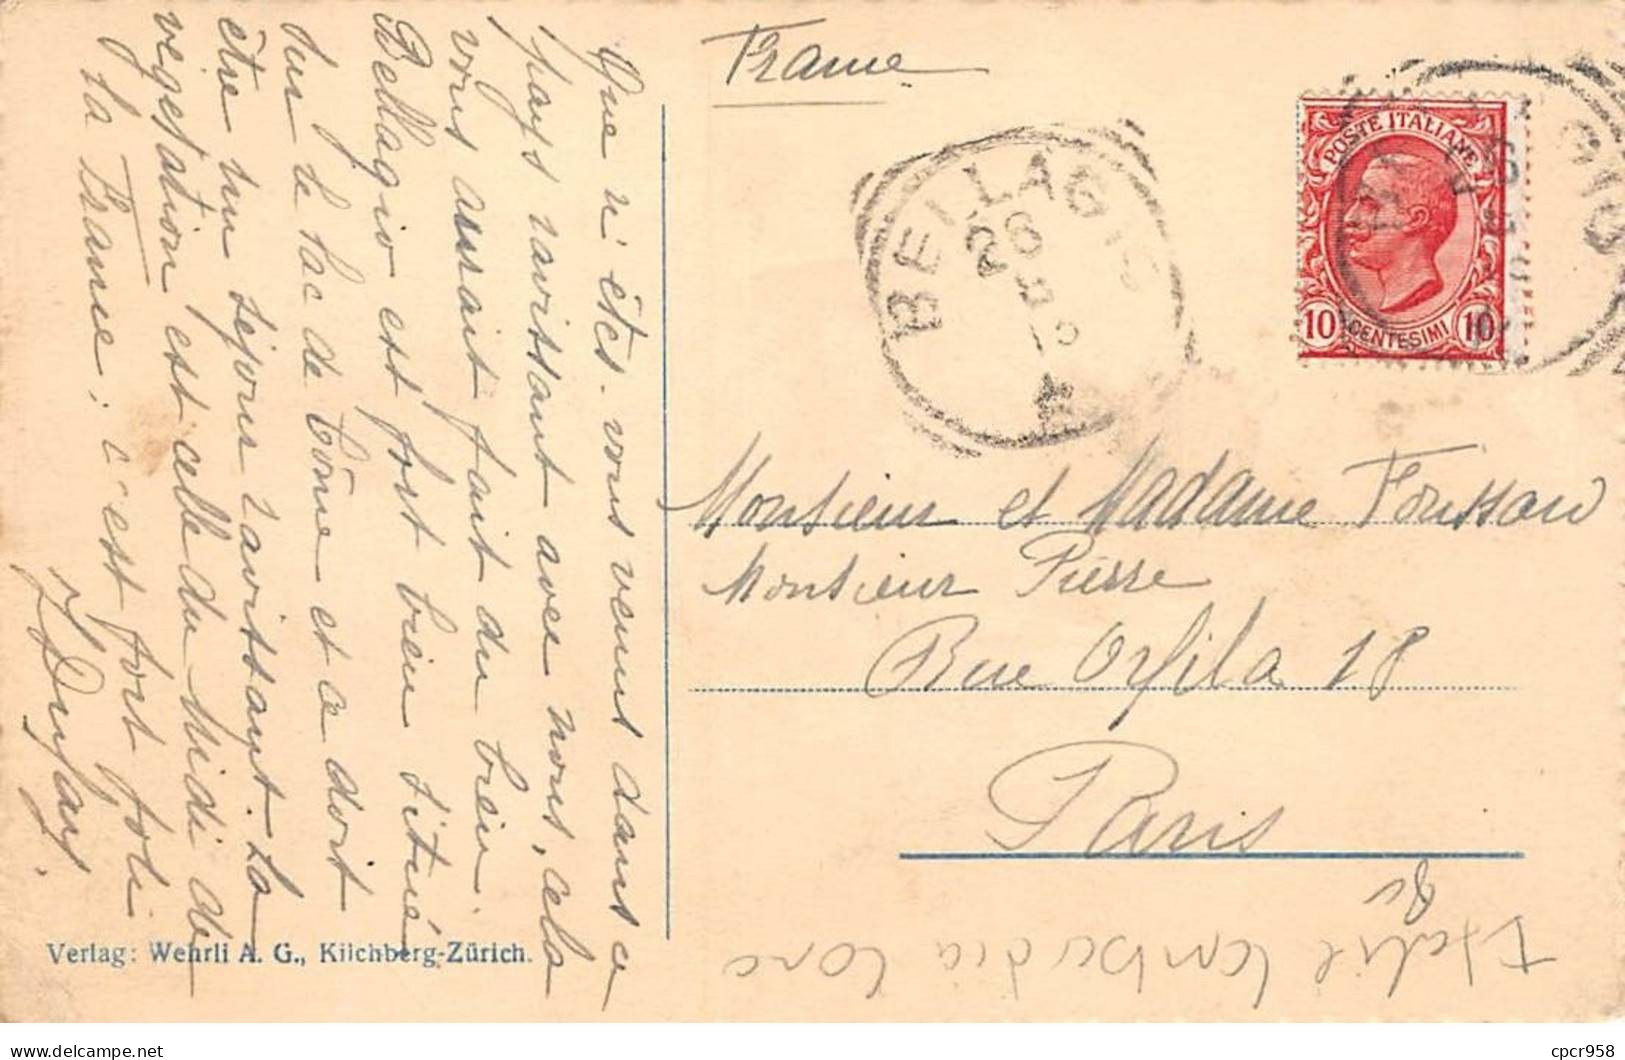 Que n'êtes-vous venus dans ce
pays ravissant avec nous, cela
vous aurait fait du bien.
Bellagio est fort bien situé
sur le lac de Côme et ce doit
être un séjour ravissant. La
vegetation est celle du Midi de
la France; c'est fort joli
France
BELLAGIO
26
POSTE ITALIANE
10 CENTESIMI 10
Monsieur et Madame
Monsieur Pierre
Rue Orfila 18
Paris
Verlag: Wehrli A. G., Kilchberg-Zürich.
Italie Lombardia
cpcr958